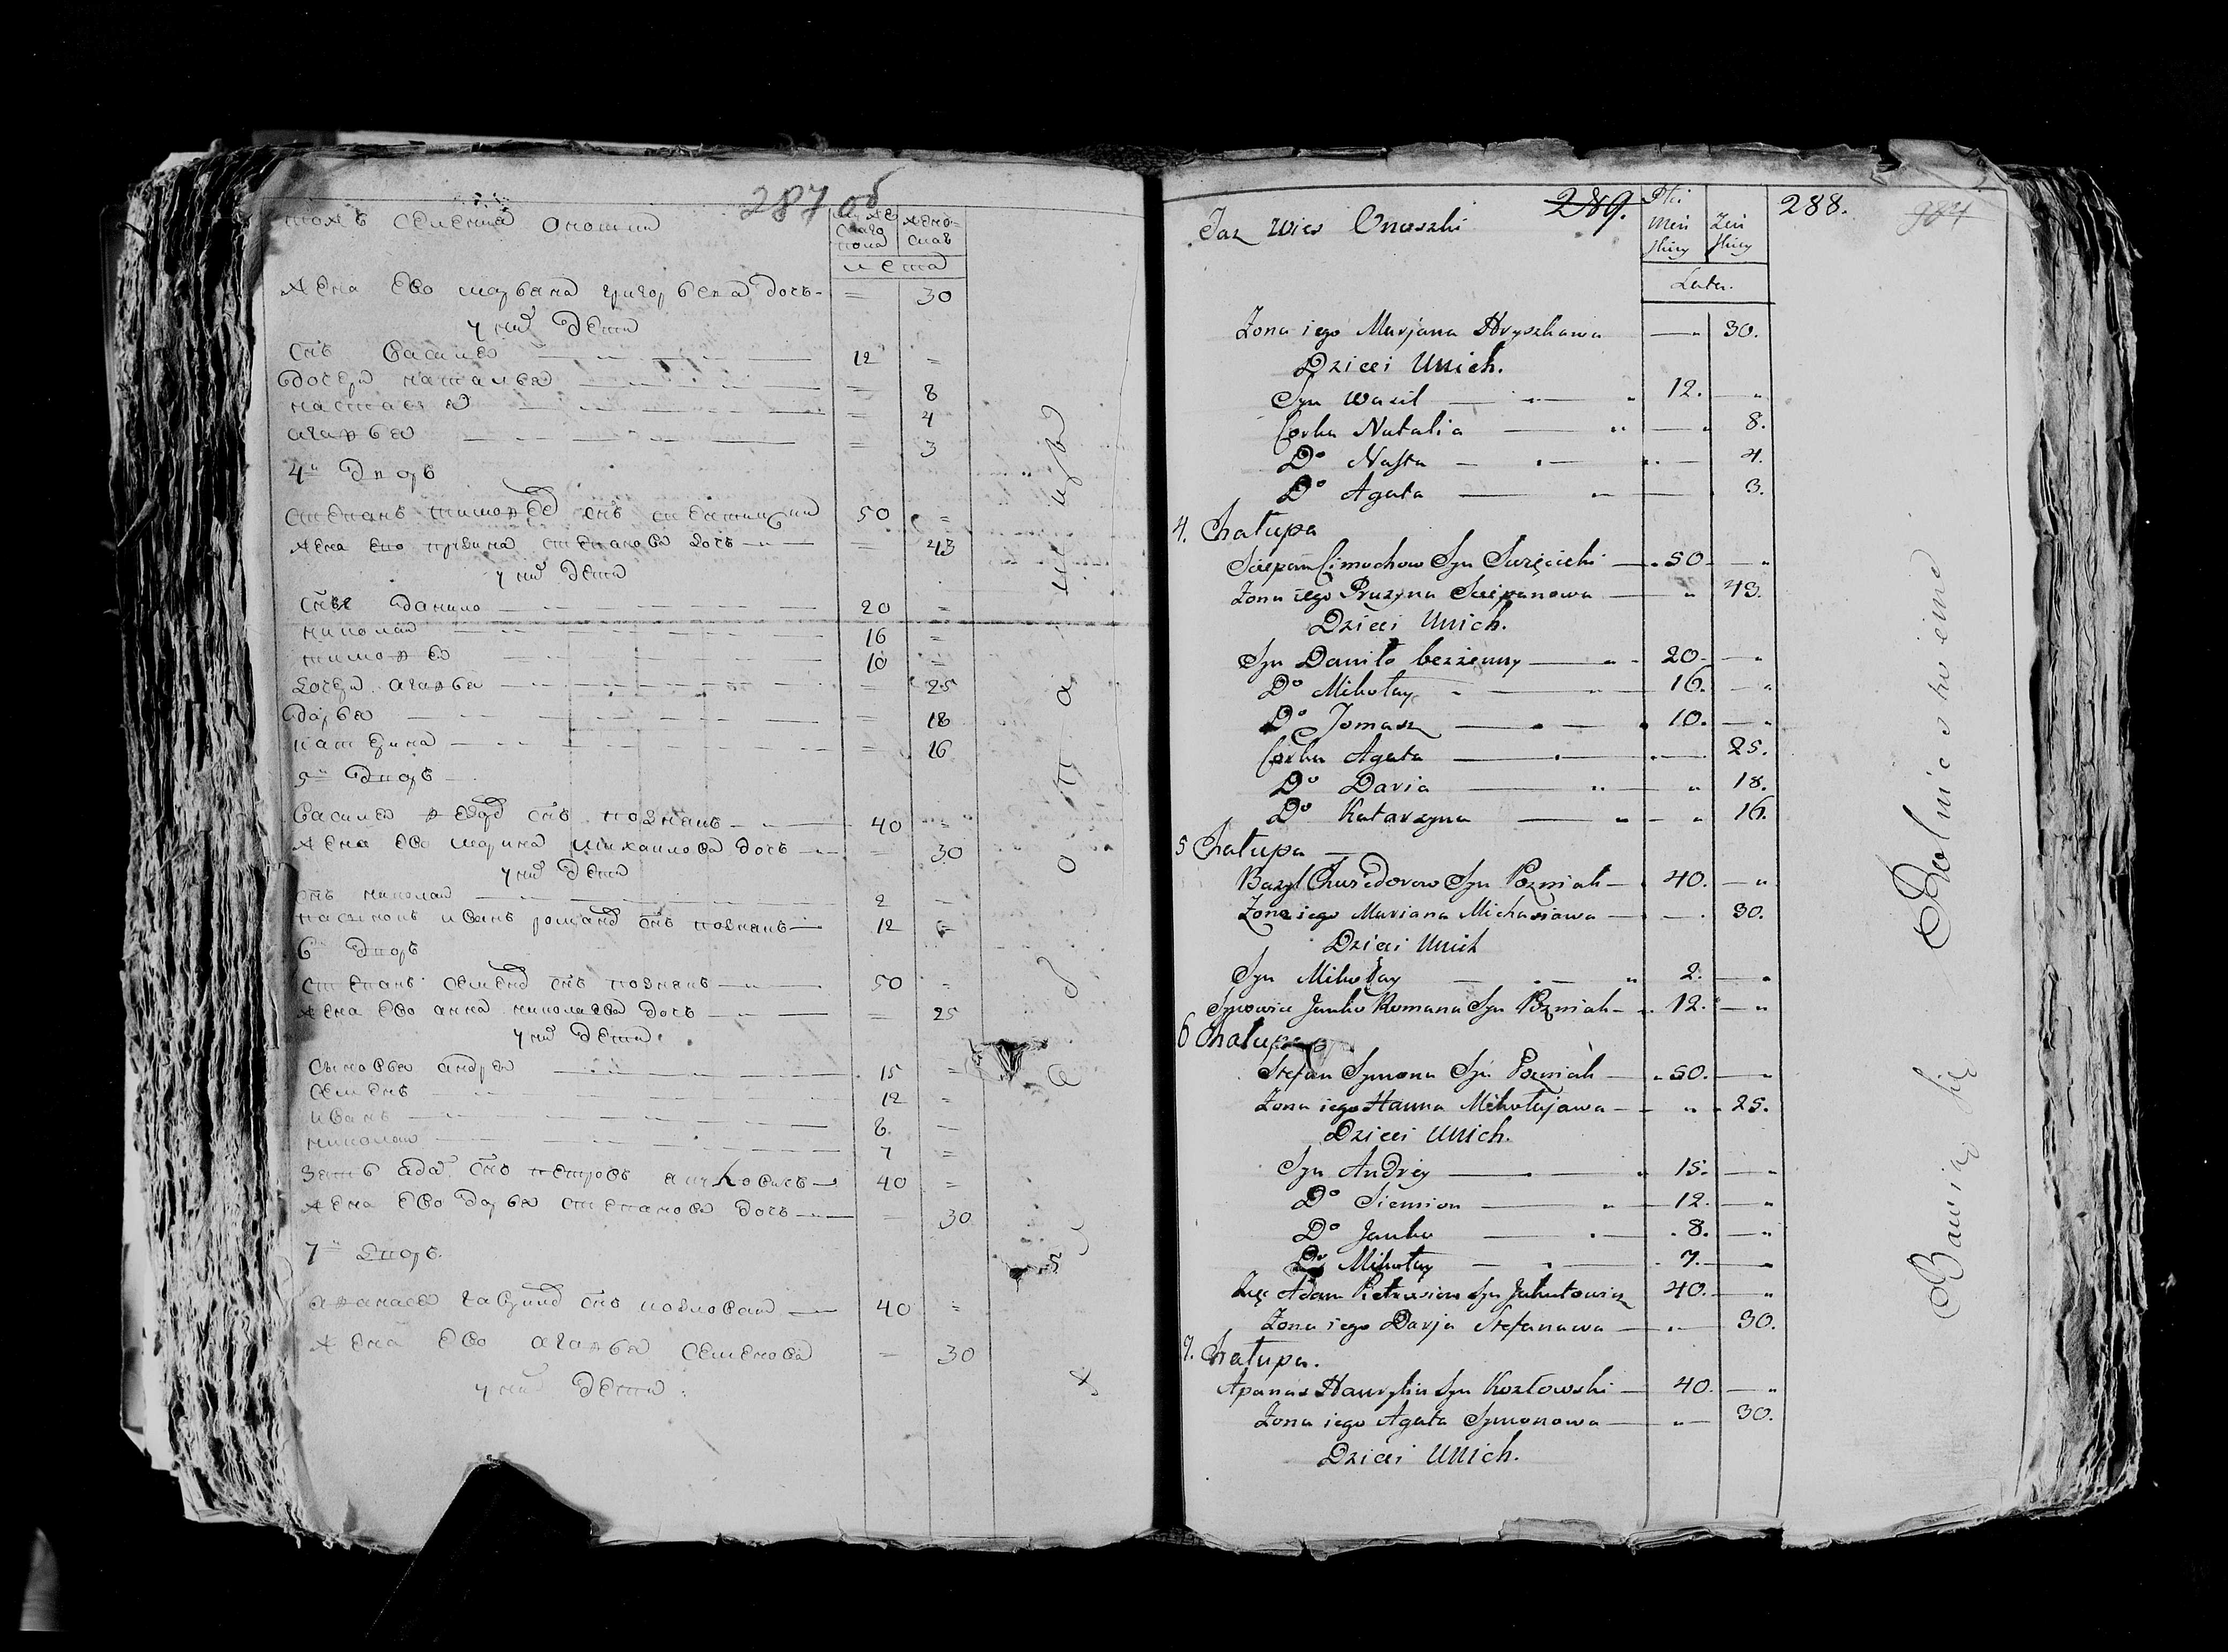 287 об
тожъ селения Оношки
муже
скаго
пола
женс-
скаго
лета
жена ево марьяна григорьева дочь 30
у них дети
снъ василей 12
дочери наталья 8
настасья 4
агафья 3
4й дворъ
степанъ тимофеев снъ 50
жена ево степанова дочь 43
у них дети
снъ данило 20
николай 16
тимофей 10
дочери агафья 25
дарья 18
катерина 16
5й дворъ
василей федоров снъ познякъ 40
жена ево марина михайлова дочь 30
у них дети
снъ николай 2
иванъ романов снъ познякъ 12
6й дворъ
степанъ семенов снъ познякъ 50
жена ево анна николаева дочь 25
у них дети
сыновья андрей 15
семенъ 12
иванъ 8
николай 7
зять адам снъ петровъ 40
жена ево дарья степанова дочь 30
7й дворъ
афанасей снъ козловский 40
жена ево агафья семенова 30
у них дети
289. 288. 984
Taż wieś Onoszki
Płci
Męs
skiey
Żeń
skiey
Lata.
Żona iego Marjana Hryszkawa — 30.
Dzieci Unich.
Syn Wasil — 12. —
Corka Natalia — 8.
Do Nasta — 4.
Do Agata — 3.
4. Chałupa
Sciepan Cimochow Syn — 50 —
Żona iego Pruzyna Sciepanowa — 43.
Dzieci Unich.
Syn Daniło bezżenny — 20 —
Do Mikołay — 16. —
Do Tomasz — 10. —
Corka Agata — 25.
Do Daria — 18.
Do Katarzyna — 16.
5 Chałupa —
Bazyl Chwiedorow Syn Pozniak — 40. —
Żona iego Mariana Michasiowa — 30.
Dzieci Unich
Syn Mikołay — 2. —
Synowiec Janko Romana Syn Pozniak — 12. —
6 Chałupa
Stefan Symona Syn Pozniak — 50. —
Żona iego Hanna Mikołajowa — 25.
Dzieci Unich.
Syn Andrey — 15. —
Do Siemion — 12. —
Do Janko — 8. —
Do Mikołay — 7. —
Zięć Adam Syn Jakutowicz 40. —
Żona iego Darja Stefanawa — 30.
7. Chałupa.
Apanas Hawrylin Syn Kozłowski — 40. —
Żona iego Agata Symonowa — 30.
Dzieci Unich.
Bawią się Rolnictwiem